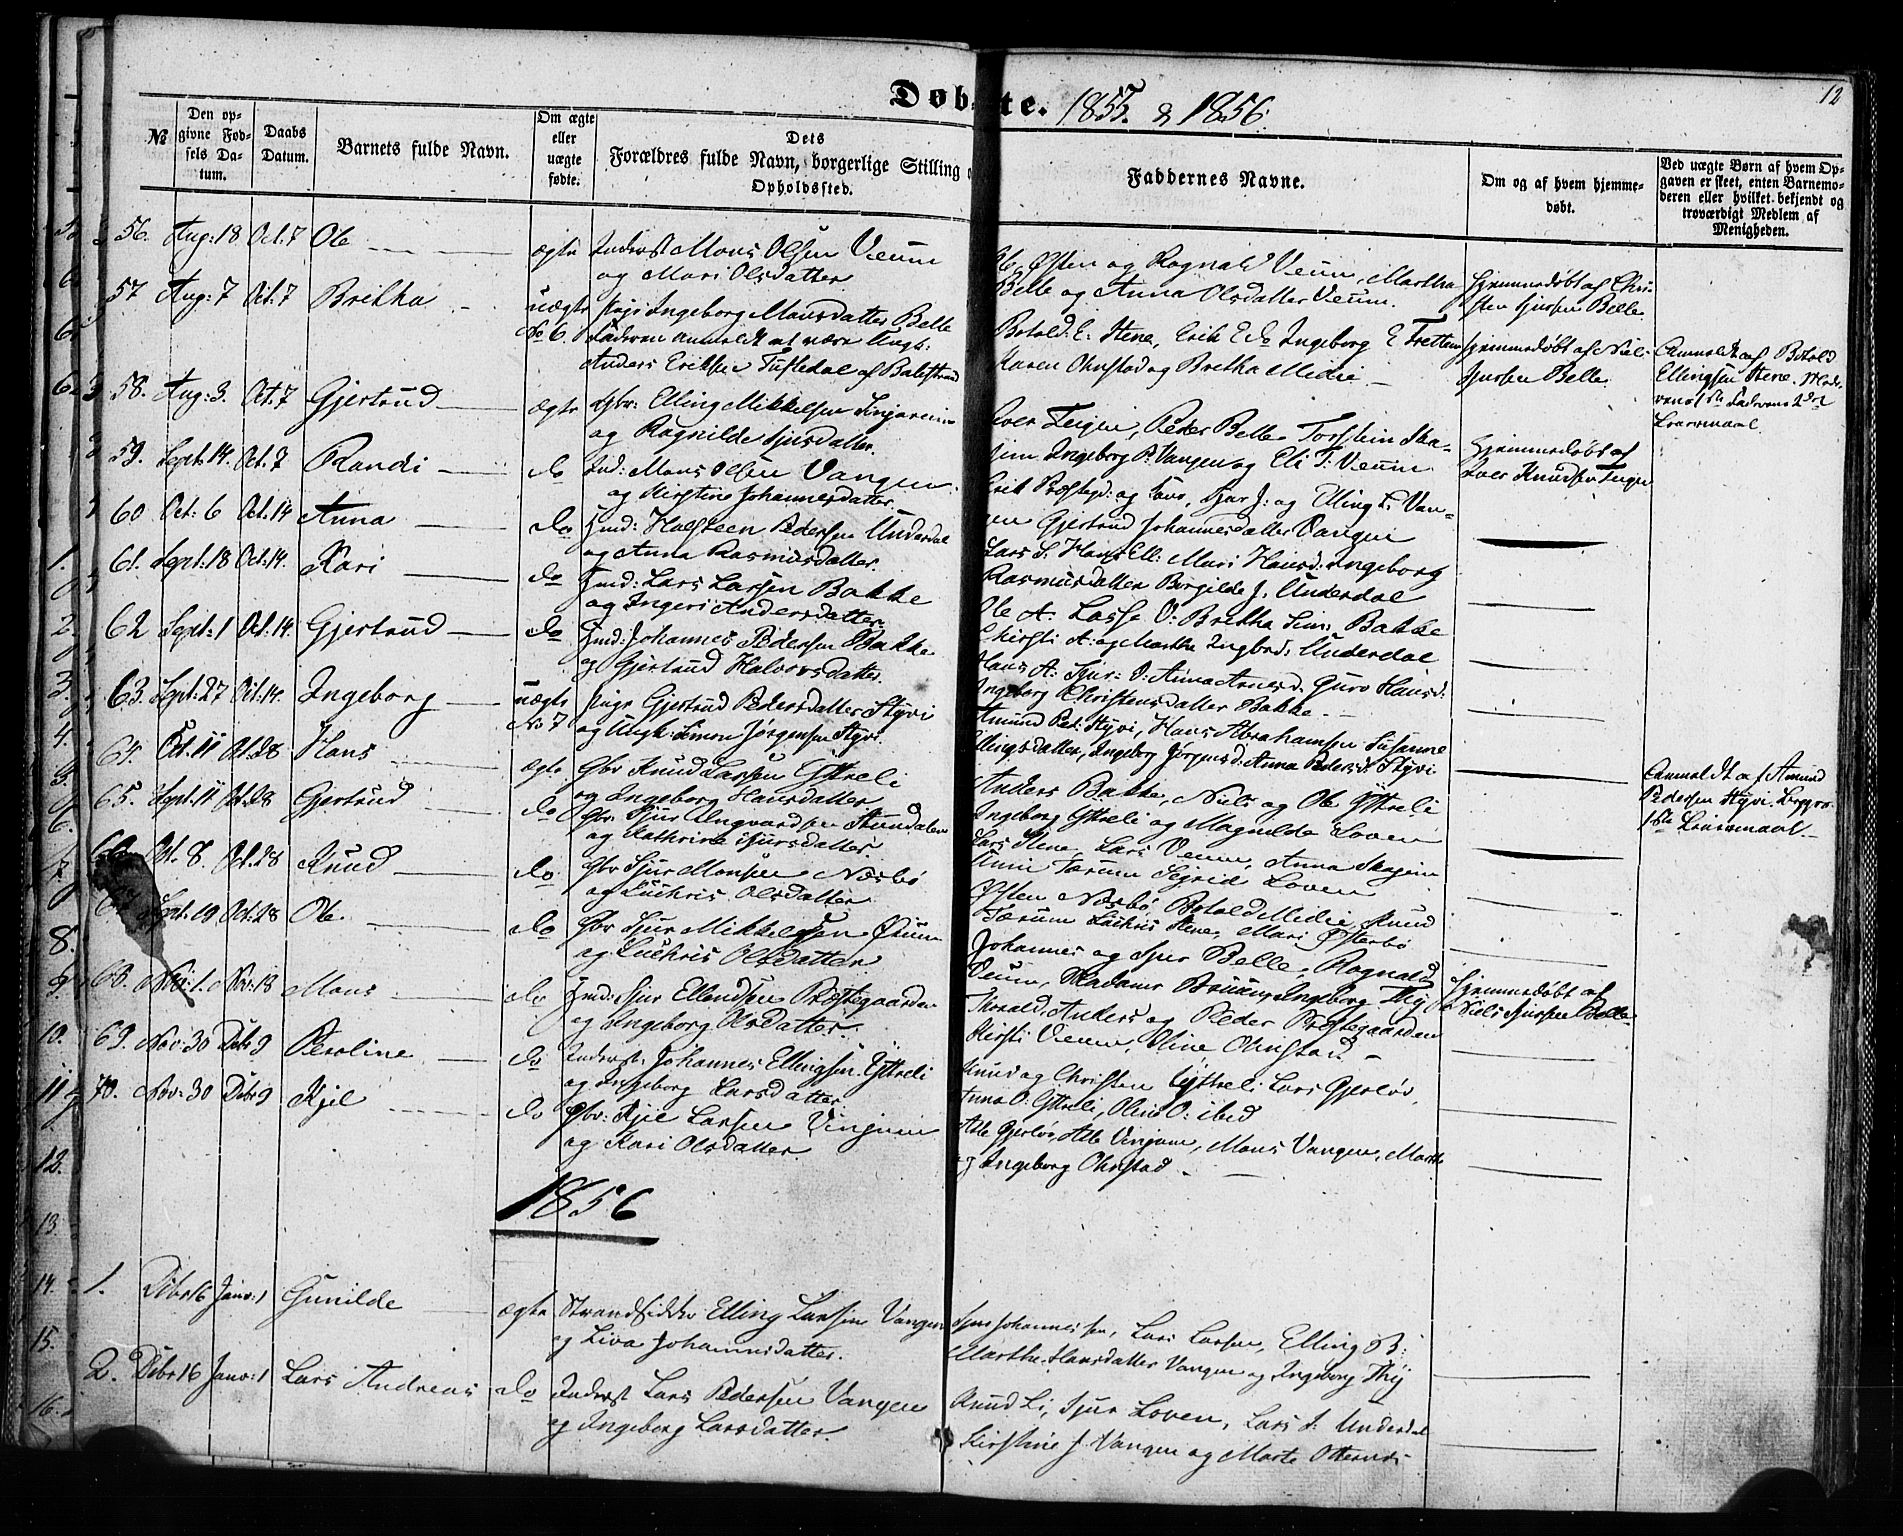 Døbte. 1855. & 1856.
12
№
Den opgivne Fødsels Datum.
Daabs Datum.
Barnets fulde Navn.
Om ægte eller uægte fødte.
Dets Forældres fulde Navn, borgerlige Stilling Opholdssted.
Faddernes Navne.
Om og af hvem hjemmedøbt.
Ved uægte Børn af hvem Opgaven er skeet, enten Barnemoderen eller hvilket bekjendt og troværdigt Medlem af Menigheden.
56. Aug: 18 Oct. 7 Ole ægte Inderst Mons Olsen Veum
og Mari Olsdatter
Østen og Ragnald Veum, Martha
Belle og Anna Olsdatter Veum.
Hjemmedøbt af Chri-
sten Sjursen Belle
57 Aug: 7 Oct. 7 Bretha uægte No 6. Pige Ingeborg Monsdatter Belle
Faderen anmeldt at være Ungk:
Anders Eriksen Tufledal af Balestrand
Botold E. Stene, Erik E do Ingeborg E Fretten
Karen Ohnstad og Bretha Midie
Hjemmedøbt af Niel-
Sjursen Belle
Anmeldt af Botold
Ellingsen Stene. Mod-
rens 1ste Faderens 2det
Leiermaal.
58. Aug: 3. Oct. 7 Gjertrud ægte Gbr: Elling Mikkelsen
og Ragnilde Sjursdatter.
Iver Teigen, Peder Belle Torstein Ska-
jim Ingeborg P. Vangen og Eli T: Veum
Hjemmedøbt af
Iver Knudsen Teigen
59. Sept: 14. Oct. 7 Randi do Ind: Mons Olsen Vangen
og Kirstine Johannesdatter.
Erik Præstegd: og Iver, Sjur J: og Elling L. Van-
gen Gjertrud Johannesdatter Vangen
60 Oct: 6 Oct. 14 Anna do Hmd: Halsteen Pedersen Underdal
og Anna Rasmusdatter.
Lars S. Hans Ell: Mari Hansd: Ingeborg
Rasmusdatter Borgilde J. Underdal
61. Sept: 18 Oct: 14. Kari do Hmd: Lars Larsen Bakke
og Ingeri Andersdatter
Ole A: Lasse O: Bretha Sim: Bakke
Christi A: og Martha Ingbrd: Underdal
62 Sept: 1 Oct. 14. Gjertrud do Hmd: Johannes Pedersen Bakke
og Gjertrud Halvorsdatter.
Hans A: Sjur: J: Anna Arnesd. Guro Hansd:
Ingeborg Christensdatter Bakke.
63. Sept: 27 Oct. 14. Ingeborg uægte No 7 Pige Gjertrud Pedersdatter Styvi
og Ungk: Simon Jørgensen Styvi.
Amund Ped: Styvi, Hans Abrahamsen Susanne
Ellingsdatter, Ingeborg Jørgensd: Anna Pedersd: Styvi
Anmeldt af Amund
Pedersen Styvi. Begges
1ste Leiermaal
64. Oct. 11 Oct. 28 Hans ægte Gbr Knud Larsen Yttreli
og Ingeborg Hansdatter
Anders Bakke, Niels og Ole Yttreli
Ingeborg Yttreli og Magnilde Loven
65. Sept: 11 Oct. 28 Gjertrud do Gbr: Sjur Ingvardsen Stundalen
og Kathrina Sjursdatter.
Lars Stene, Lars Veum, Anna Skajem
Anni Tærum Segrid Loven
66. Oct. 8. Oct. 28 Knud do Gbr Sjur Monsen Næsbø
og Luchris Olsdatter
Østen Næsbø, Botold Midie Knud
Tærum Luchris Stene, Mari Østerbø
67 Sept: 19 Oct. 28 Ole do Gbr Sjur Mikkelsen Ørum
og Luchris Olsdatter
Johannes og Sjur Belle, Ragnald
Veum, Madame Bruun, Ingeborg Thy
Hjemmedøbt af
Niels Sjursen Belle
68. Nov: 1. Nov: 18 Mons do Hmd: Sjur Ellendsen Præstegaarden
og Ingeborg Olsdatter.
Thorald, Anders og Peder Præstegaarden
Kirsti Veum, Oline Ohnstad.
69. Nov: 30 Debr 9 Peroline do Inderst: Johannes Ellingsen Yttreli
og Ingeborg Larsdatter
Knud og Christen Yttreli Lars Gjerløv,
Anna O: Yttreli, Oline O: ibid
70. Nov: 30 Debr 9 Kjel do Gbr: Kjel Larsen Vinjum
og Kari Olsdatter.
Atle Gjerløv, Atle Vinjum, Mons Vangen, Martha
og Ingeborg Ohnstad
1856
1. Debr 16 Janv: 1 Gunilde ægte Strandsidder Elling Larsen Vangen
og Liva Johannesdatter.
Sjur Johannessen, Lars Larsen, Elling B:
Marthe Hansdatter Vangen og Ingeborg Thy
2. Debr 16 Janv: 1 Lars Andreas do Inderst Lars Pedersen Vangen
og Ingeborg Larsdatter.
Knud Li, Sjur Loven, Lars S. Underdal
Kirstine J. Vangen og Marte Otternes